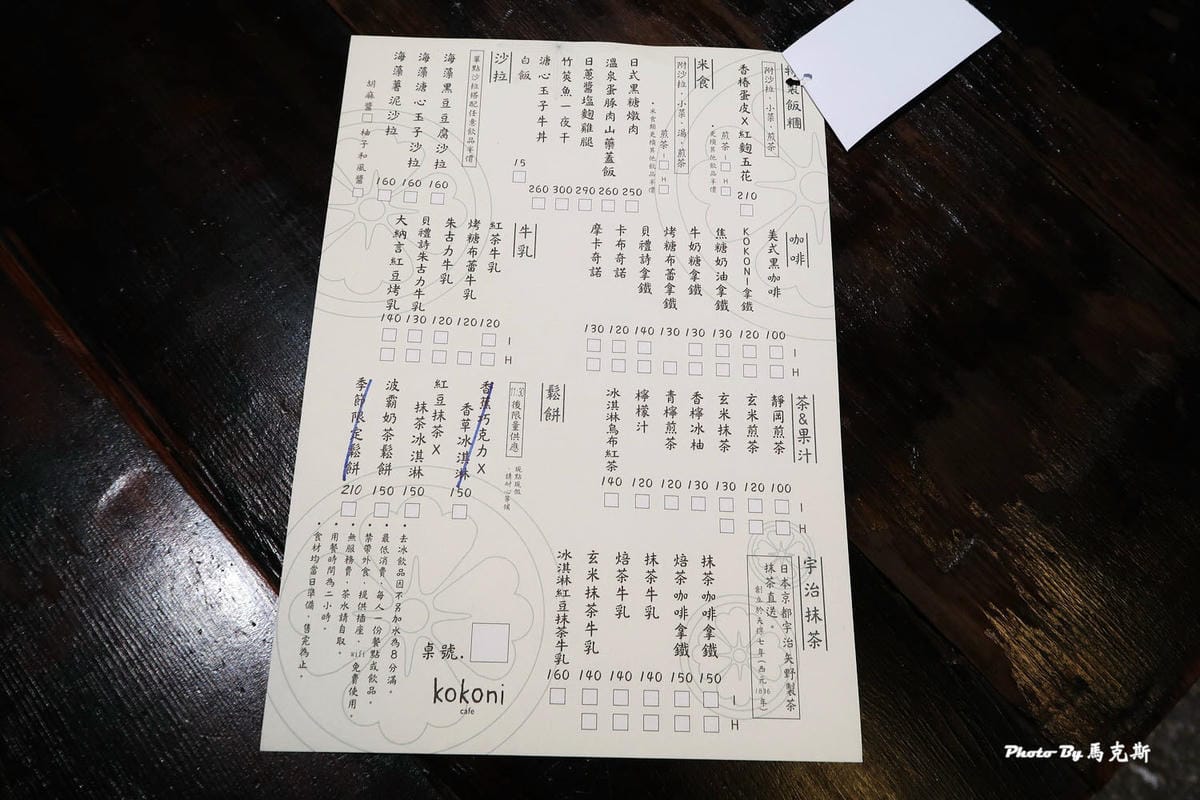 特製飯糰
附沙拉、小菜、煎茶
香椿蛋皮X紅麴五花 210
煎茶 I H
・更換其他飲品半價
米食
附沙拉、小菜、湯、煎茶
煎茶 I H
・米食類更換其他飲品半價
日式黑糖燉肉 250
溫泉蛋豚肉山藥蓋飯 260
日蔥醬塩麴雞腿 290
竹筴魚一夜干 300
溏心玉子牛丼 260
白飯 15
沙拉
單點沙拉搭配任意飲品半價
海藻黑豆豆腐沙拉 160
海藻溏心玉子沙拉 160
海藻薯泥沙拉 160
胡麻醬 柚子和風醬
咖啡
I
H
美式黑咖啡 100
KOKONI拿鐵 120
焦糖奶油拿鐵 130
牛奶糖拿鐵 130
烤糖布蕾拿鐵 130
貝禮詩拿鐵 140
卡布奇諾 120
摩卡奇諾 130
牛乳
I
H
紅茶牛乳 120
烤糖布蕾牛乳 120
朱古力牛乳 120
貝禮詩朱古力牛乳 130
大納言紅豆烤乳 140
茶&果汁
I
H
靜岡煎茶 100
玄米煎茶 120
玄米抹茶 130
香檸冰柚 130
青檸煎茶 120
檸檬汁 120
冰淇淋烏布紅茶 140
鬆餅
11:30後限量供應
・現點現做
請耐心等候
香蕉巧克力X
香草冰淇淋 150
紅豆抹茶X
抹茶冰淇淋 150
波霸奶茶鬆餅 150
季節限定鬆餅 210
宇治抹茶
日本京都宇治矢野製茶
抹茶直送。
創立於天保七年(西元1836年)
I
H
抹茶咖啡拿鐵 150
焙茶咖啡拿鐵 150
抹茶牛乳 140
焙茶牛乳 140
玄米抹茶牛乳 140
冰淇淋紅豆抹茶牛乳 160
桌號.
kokoni
cafe
・去冰飲品因不另加水為8分滿。
・最低消費，每人一份餐點或飲品。
・禁帶外食，提供插座、wifi免費使用。
・無服務費，茶水請自取。
・用餐時間為二小時。
・食材均當日準備，售完為止。
Photo By 馬克斯